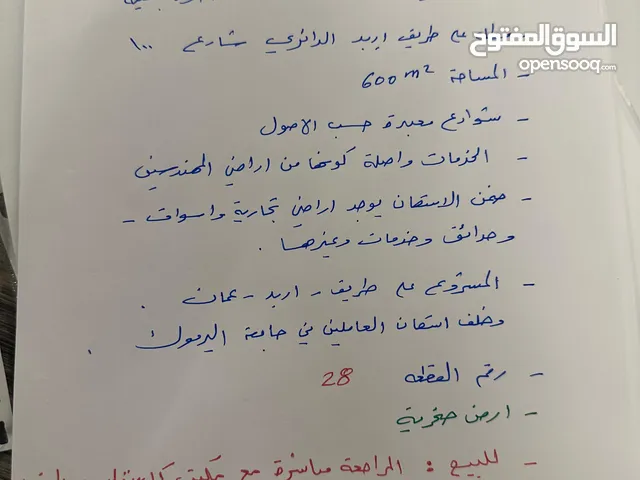 السوق المفتوح
opensooq.com
على طريق اربد الدائري شارع ١٠٠
- المساحة 600 m²
- شوارع معبدة حسب الاصول
- الخدمات واصلة كونها من اراضي المهندسين
- ضمن الاسكان يوجد اراضي تجارية واسواق -
وحدائق وخدمات وغيرها .
- المشروع على طريق - اربد - عمان .
وخلف اسكان العاملين في جامعة اليرموك .
- رقم القطعه 28
- ارض صخرية
- للبيع : المراجعة مباشرة مع